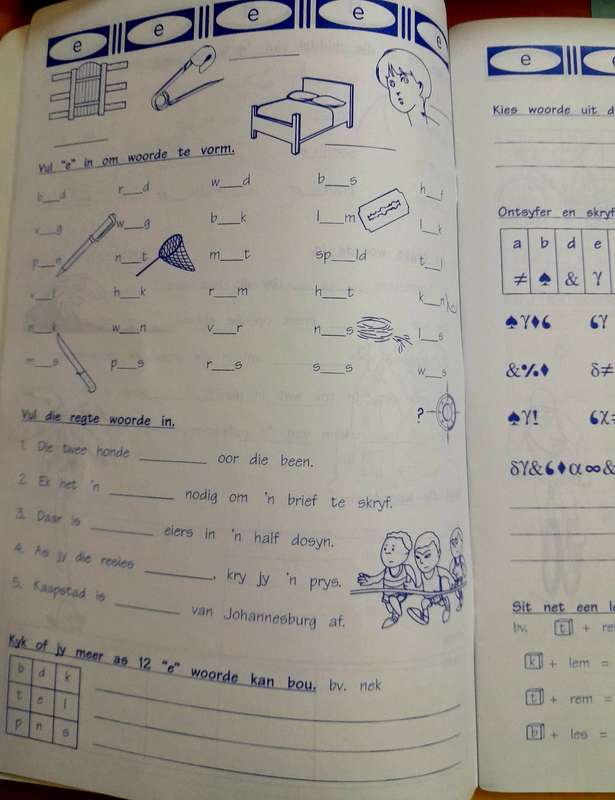 e e e e e
Vul "e" in om woorde te vorm.
b___d r___d w___d b___s h___f
v___g w___g b___k l___m l___k
p___n n___t m___t sp___ld t___l
v___l h___k r___m h___t k___n
n___k w___n v___r n___s l___s
m___s p___s r___s s___s w___s
?
Vul die regte woorde in.
1. Die twee honde ________ oor die been.
2. Ek het 'n ________ nodig om 'n brief te skryf.
3. Daar is ________ eiers in 'n half dosyn.
4. As jy die resies ________, kry jy 'n prys.
5. Kaapstad is ________ van Johannesburg af.
Kyk of jy meer as 12 "e" woorde kan bou. bv. nek
b d k
t e l
p n s
e
Kies woorde uit d
Ontsyfer en skryf
a b d e
≠ ♠ & γ
♠γ♦6 6γ
&%♦ δ≠
♠γ!
δγ&6♦α∞&
Sit net een le
bv. t + re
k + lem =
t + rem =
b + les =